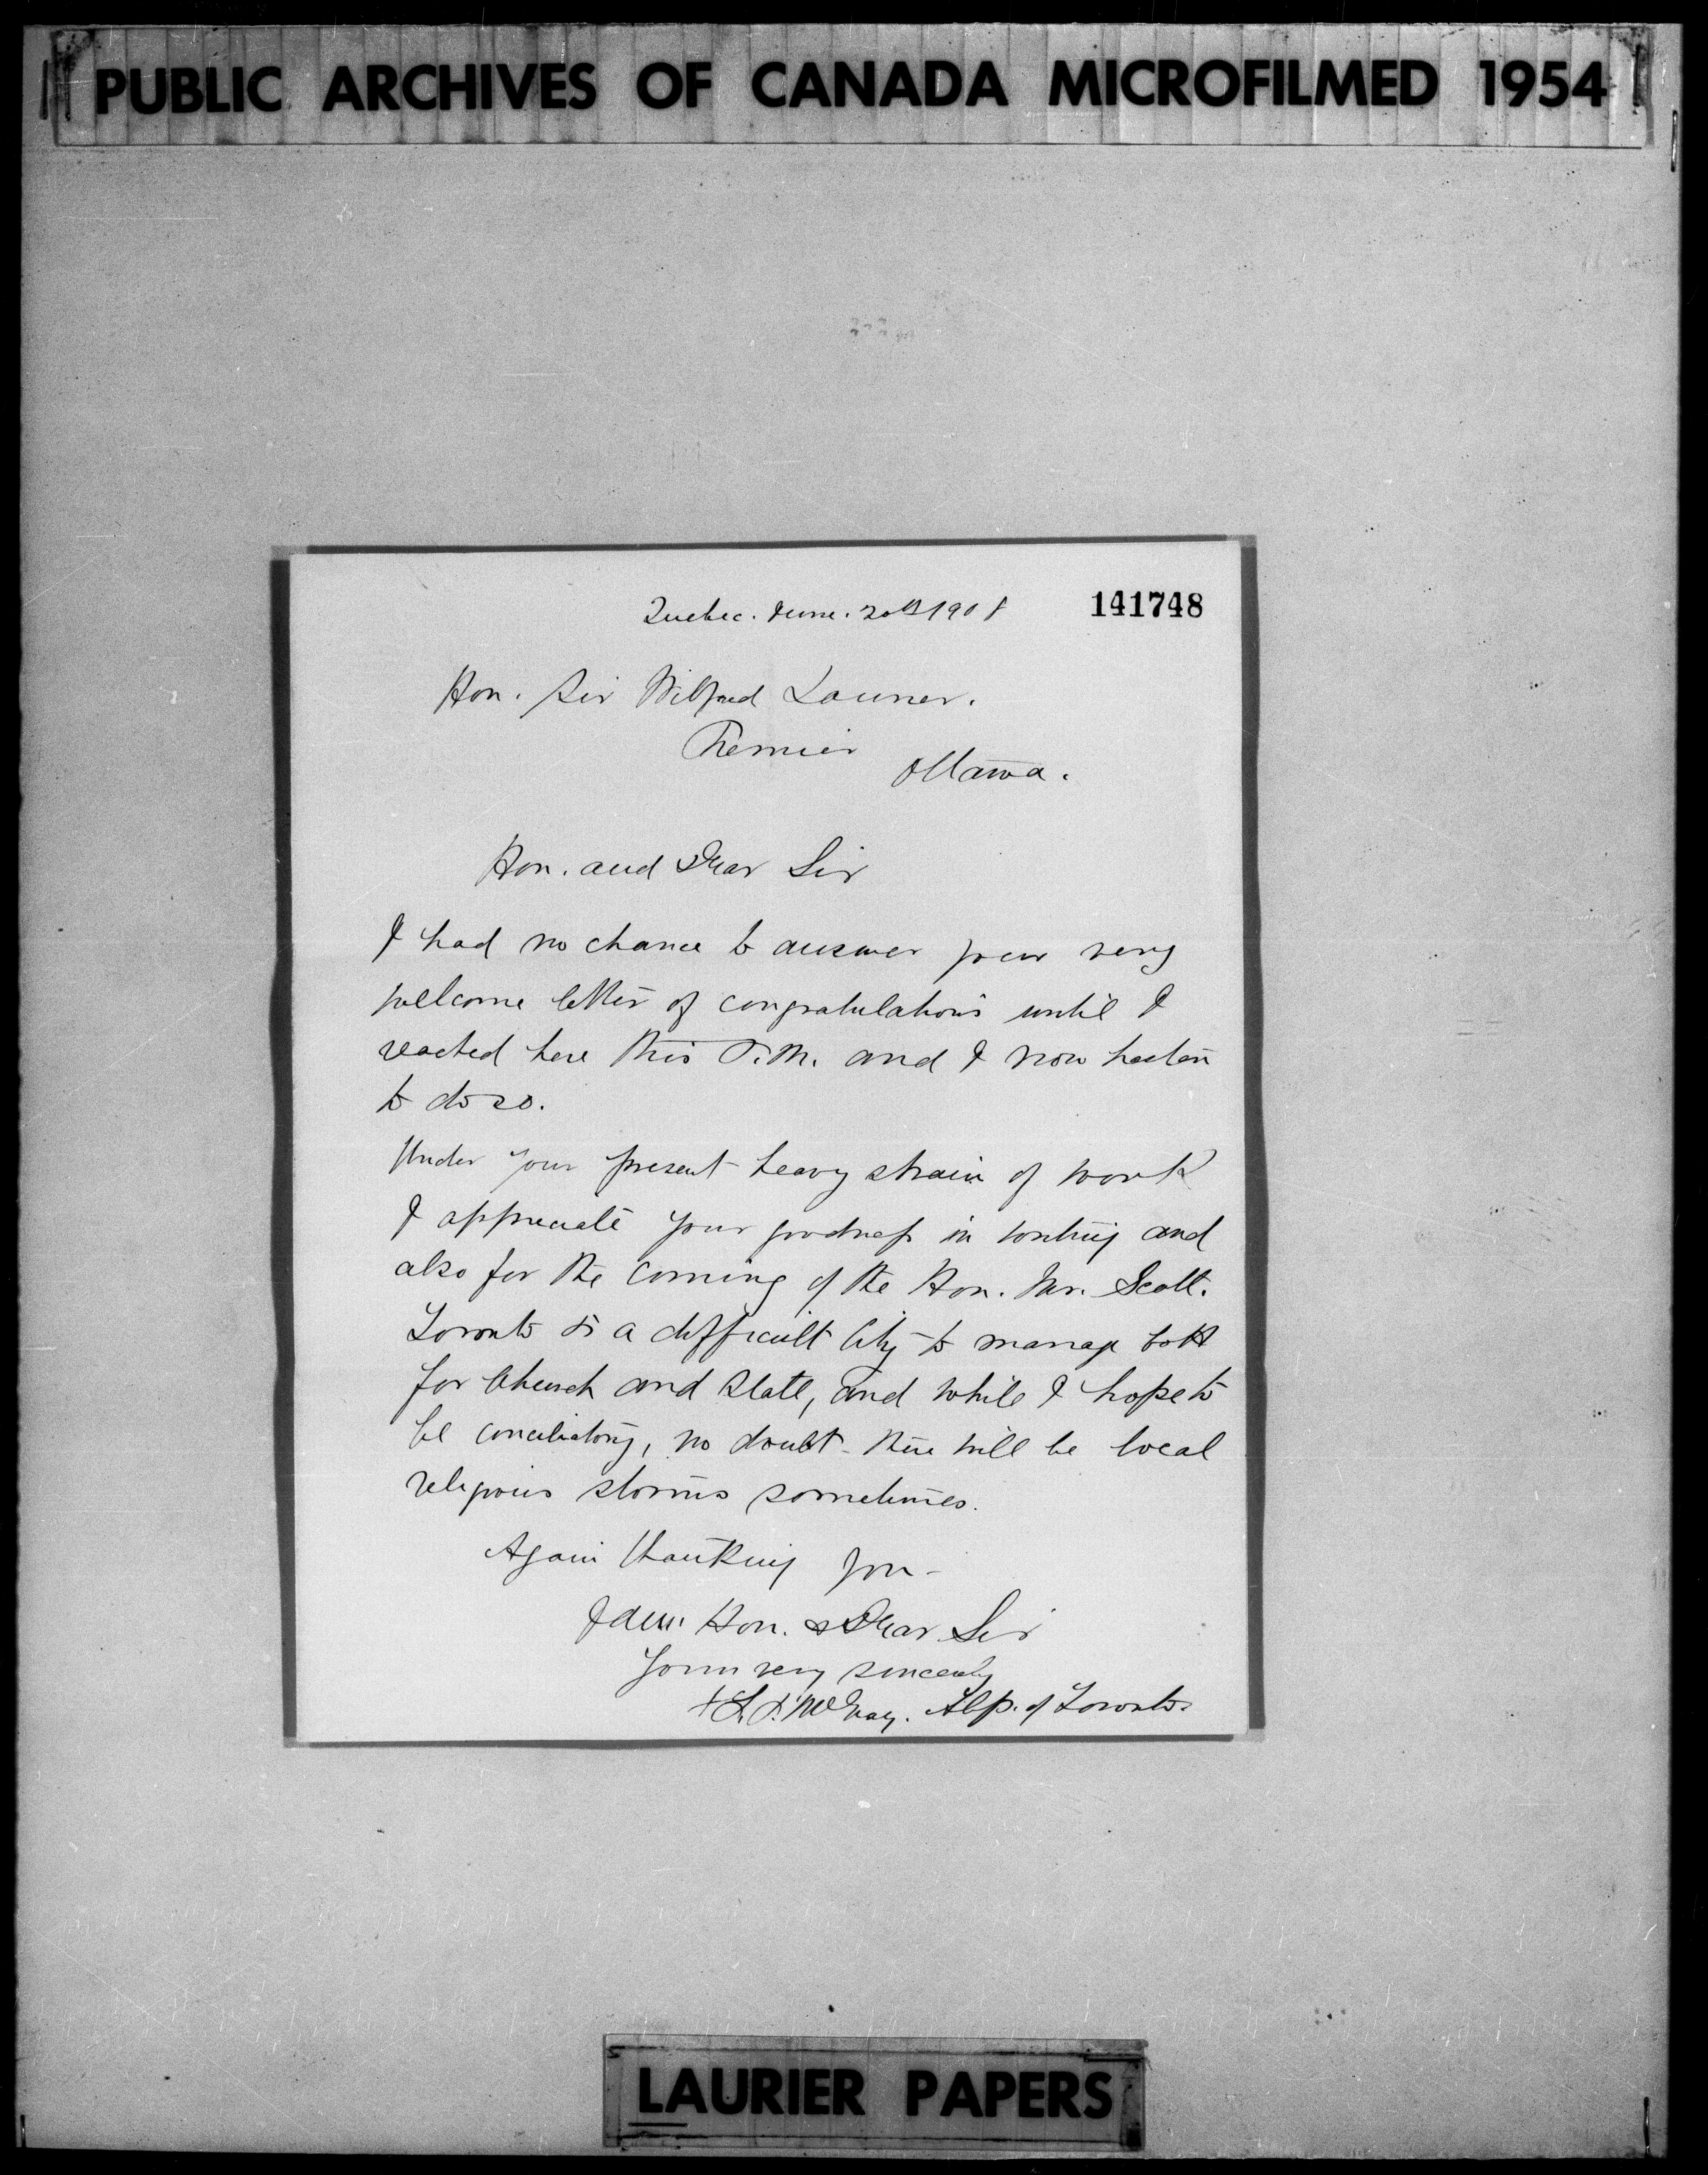 PUBLIC ARCHIVES OF CANADA MICROFILMED 1954
Quebec. June. 20th 1908
141748
Hon. Sir Wilfred Laurier.
Premier
Ottawa.
Hon. and Dear Sir
I had no chance to answer your very
welcome letter of congratulations until I
reached here this P.M. and I now hasten
to do so.
Under your present heavy strain of work
I appreciate your goodness in writing and
also for the coming of the Hon. Mr. Scott.
Toronto is a difficult City to manage both
for Church and State, and while I hope to
be conciliatory, no doubt there will be local
religious storms sometimes.
Again thanking you -
I am Hon. & Dear Sir
Yours very sincerely
+ F. P. McEvay. Abp. of Toronto.
LAURIER PAPERS